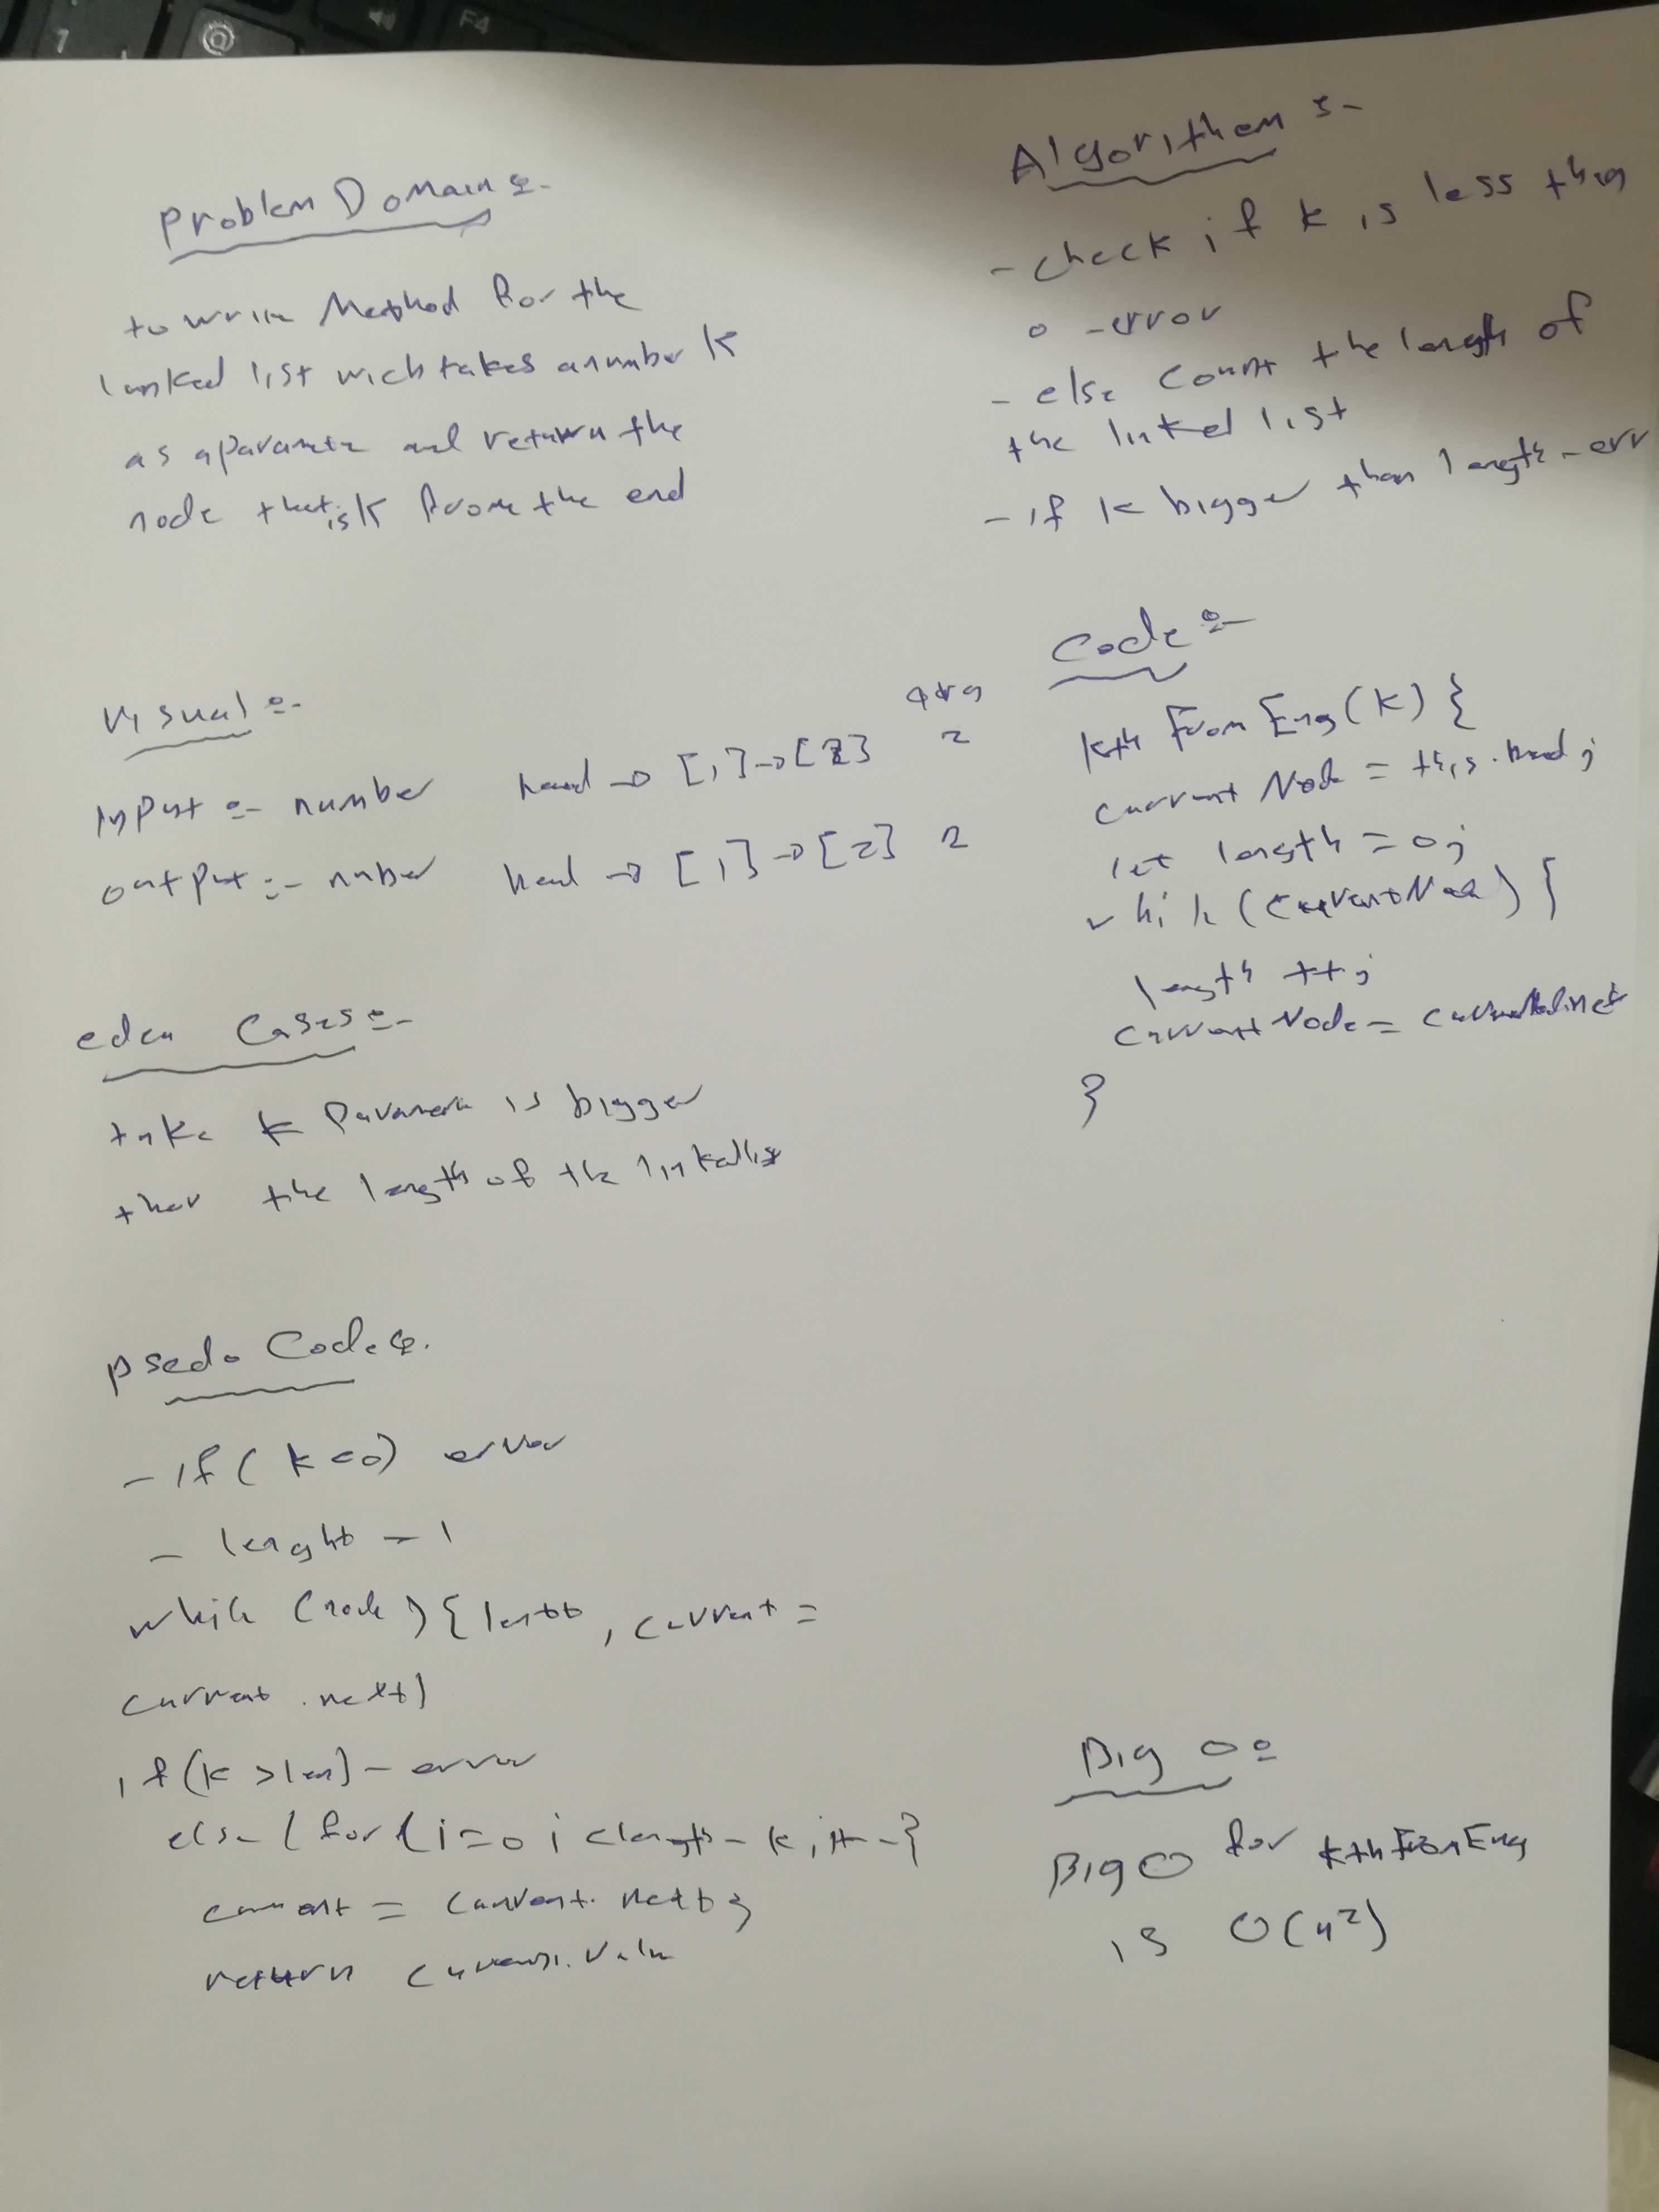 Problem Domain :-
to write Method for the
linked list wich takes a number k
as a parameter and return the
node that is k from the end
Visual :-
args
input :- number head -> [1] -> [2] 2
output :- number head -> [1] -> [2] 2
Cases :-
take k Parameter is bigger
than the length of the linkedlist
psedo Code :-
- if ( k <0) error
- lenght = 1
while (node) { len++ , current =
current . next }
if (k > len) - error
else { for ( i = 0 i < length - k , i++ - }
current = current. next }
return current. value
Algorithem :-
- check if k is less than
0 -error
- else count the length of
the linked list
- if k bigger than length - err
Code :-
kth From Eng (k) {
current Node = this . head ;
let length = 0 ;
while (currentNode) {
length ++ ;
current Node = currentNode.next
}
Big O :
Big O for kthFromEng
is O(n²)
F4
@